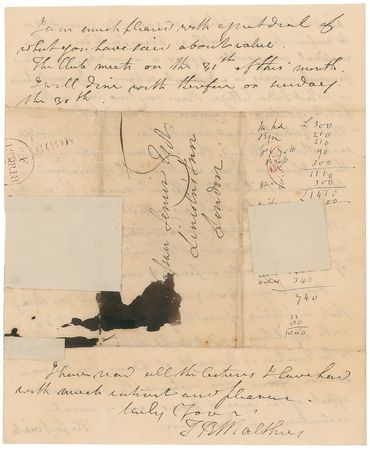 I am much pleased with a great deal of
what you have said about value.
The Club meets on the 31st of this month.
I will dine with therefore on sunday
the 30th.
Senior Esqr
Lincoln's Inn
London.
£300
210
210
90
300
1110
300
1410
340
740
300
1040
I have read all the lectures I have had
with much interest and pleasure.
truly Yours
T R Malthus